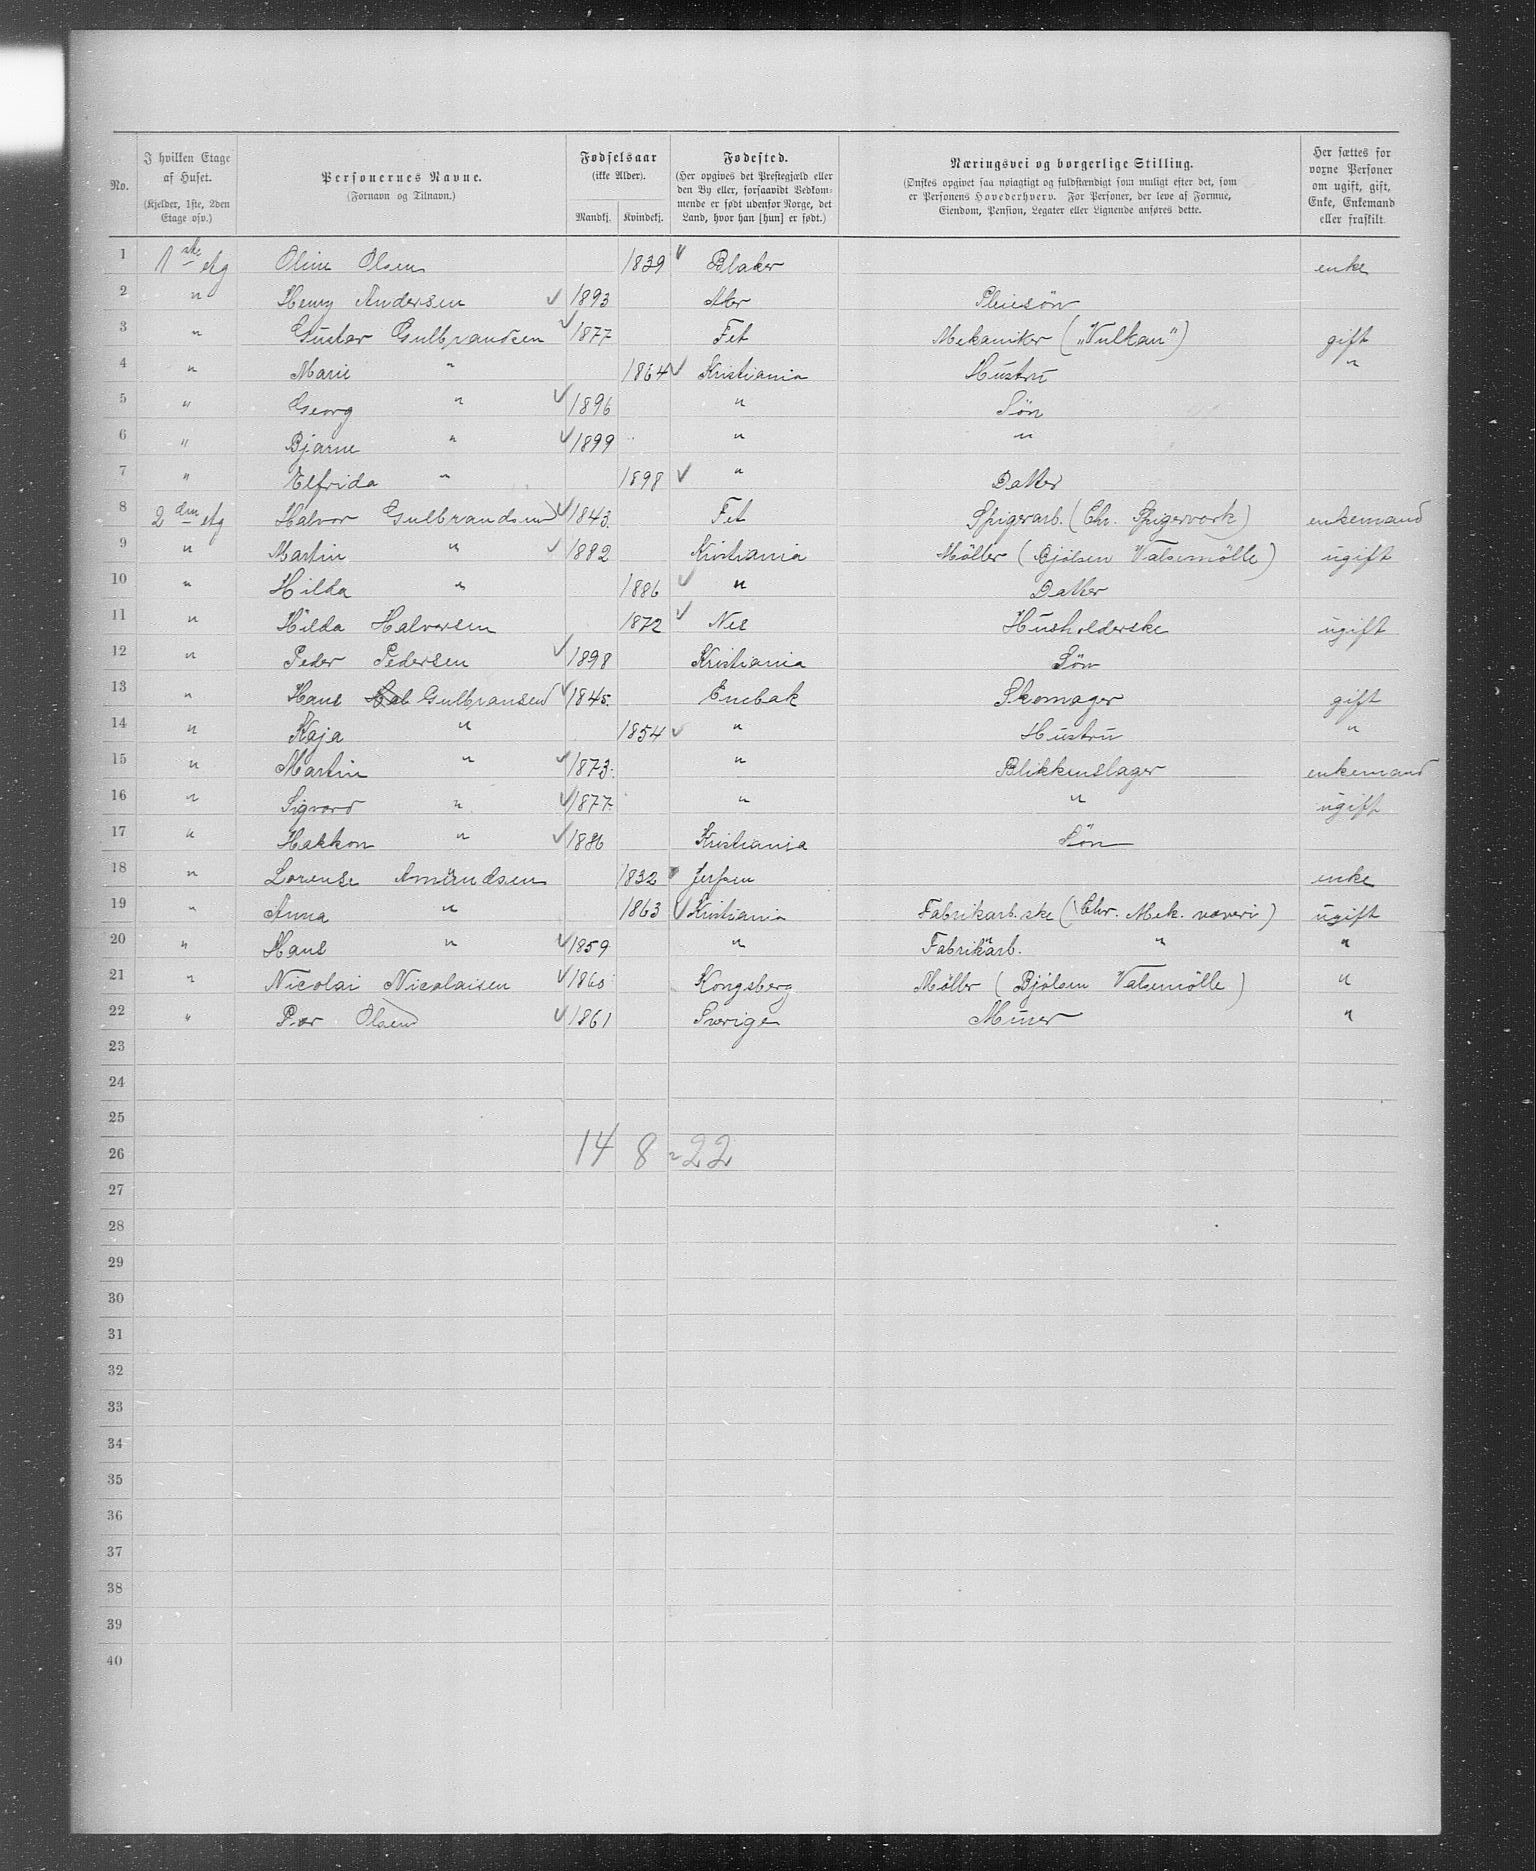 No. | I hvilken Etage af Huset. (Kjelder, 1ste, 2den Etage osv.) | Personernes Navne. (Fornavn og Tilnavn.) | Fødselsaar (ikke Alder). Mandkj. | Kvindekj. | Fødested. (Her opgives det Prestegjæld eller den By eller, forsaavidt Vedkommende er født udenfor Norge, det Land, hvor han [hun] er født.) | Næringsvei og borgerlige Stilling. (Ønskes opgivet saa nøiagtigt og fuldstændigt som muligt efter det, som er Personens Hovederhverv. For Personer, der leve af Formue, Eiendom, Pension, Legater eller Lignende anføres dette. | Her sættes for voxne Personer om ugift, gift, Enke, Enkemand eller fraskilt.
1 | 1ste etg | Oline Olsen | | 1839 ✓ | Blaker | | enke
2 | " | Henry Andersen ✓ | 1893 | | Aker | Pleiesön |
3 | " | Gustav Gulbrandsen ✓ | 1877 | | Fet | Mekaniker ("Vulkan") | gift
4 | " | Marie " | | 1864 ✓ | Kristiania | Hustru | "
5 | " | Georg " ✓ | 1896 | | " | Sön |
6 | " | Bjarne " ✓ | 1899 | | " | " |
7 | " | Elfrida " | | 1898 ✓ | " | Datter |
8 | 2den etg | Halvor Gulbrandsen ✓ | 1843. | | Fet | Spigerarb. (Chr. Spigerverk) | enkemand
9 | " | Martin " ✓ | 1882 | | Kristiania | Möller (Bjölsen Valsemölle) | ugift
10 | " | Hilda " | | 1886 ✓ | " | Datter |
11 | " | Hilda Halvorsen | | 1872 ✓ | Nes | Husholderske | ugift
12 | " | Peder Pedersen ✓ | 1898 | | Kristiania | Sön |
13 | " | Hans Gulbransen ✓ | 1845. | | Enebak | Skomager | gift
14 | " | Kaja " | | 1854 ✓ | " | Hustru | "
15 | " | Martin " ✓ | 1873. | | " | Blikkenslager | enkemand
16 | " | Sigvard " ✓ | 1877. | | " | " | ugift
17 | " | Hakkon " ✓ | 1886 | | Kristiania | Sön |
18 | " | Lorense Amundsen | | 1832 | | | enke
19 | " | Anna " | | 1863 ✓ | Kristiania | Fabrikarb.ske (Chr. Mek. væveri) | ugift
20 | " | Hans " ✓ | 1859 | | " | Fabrikarb. " " | "
21 | " | Nicolai Nicolaisen ✓ | 1860 | | Kongsberg | Möller (Bjölsen Valsemölle) | "
22 | " | Per Olsen ✓ | 1861 | | Sverige | Murer | "
23
24
25
26 | | | 14 | 8 | = 22
27
28
29
30
31
32
33
34
35
36
37
38
39
40